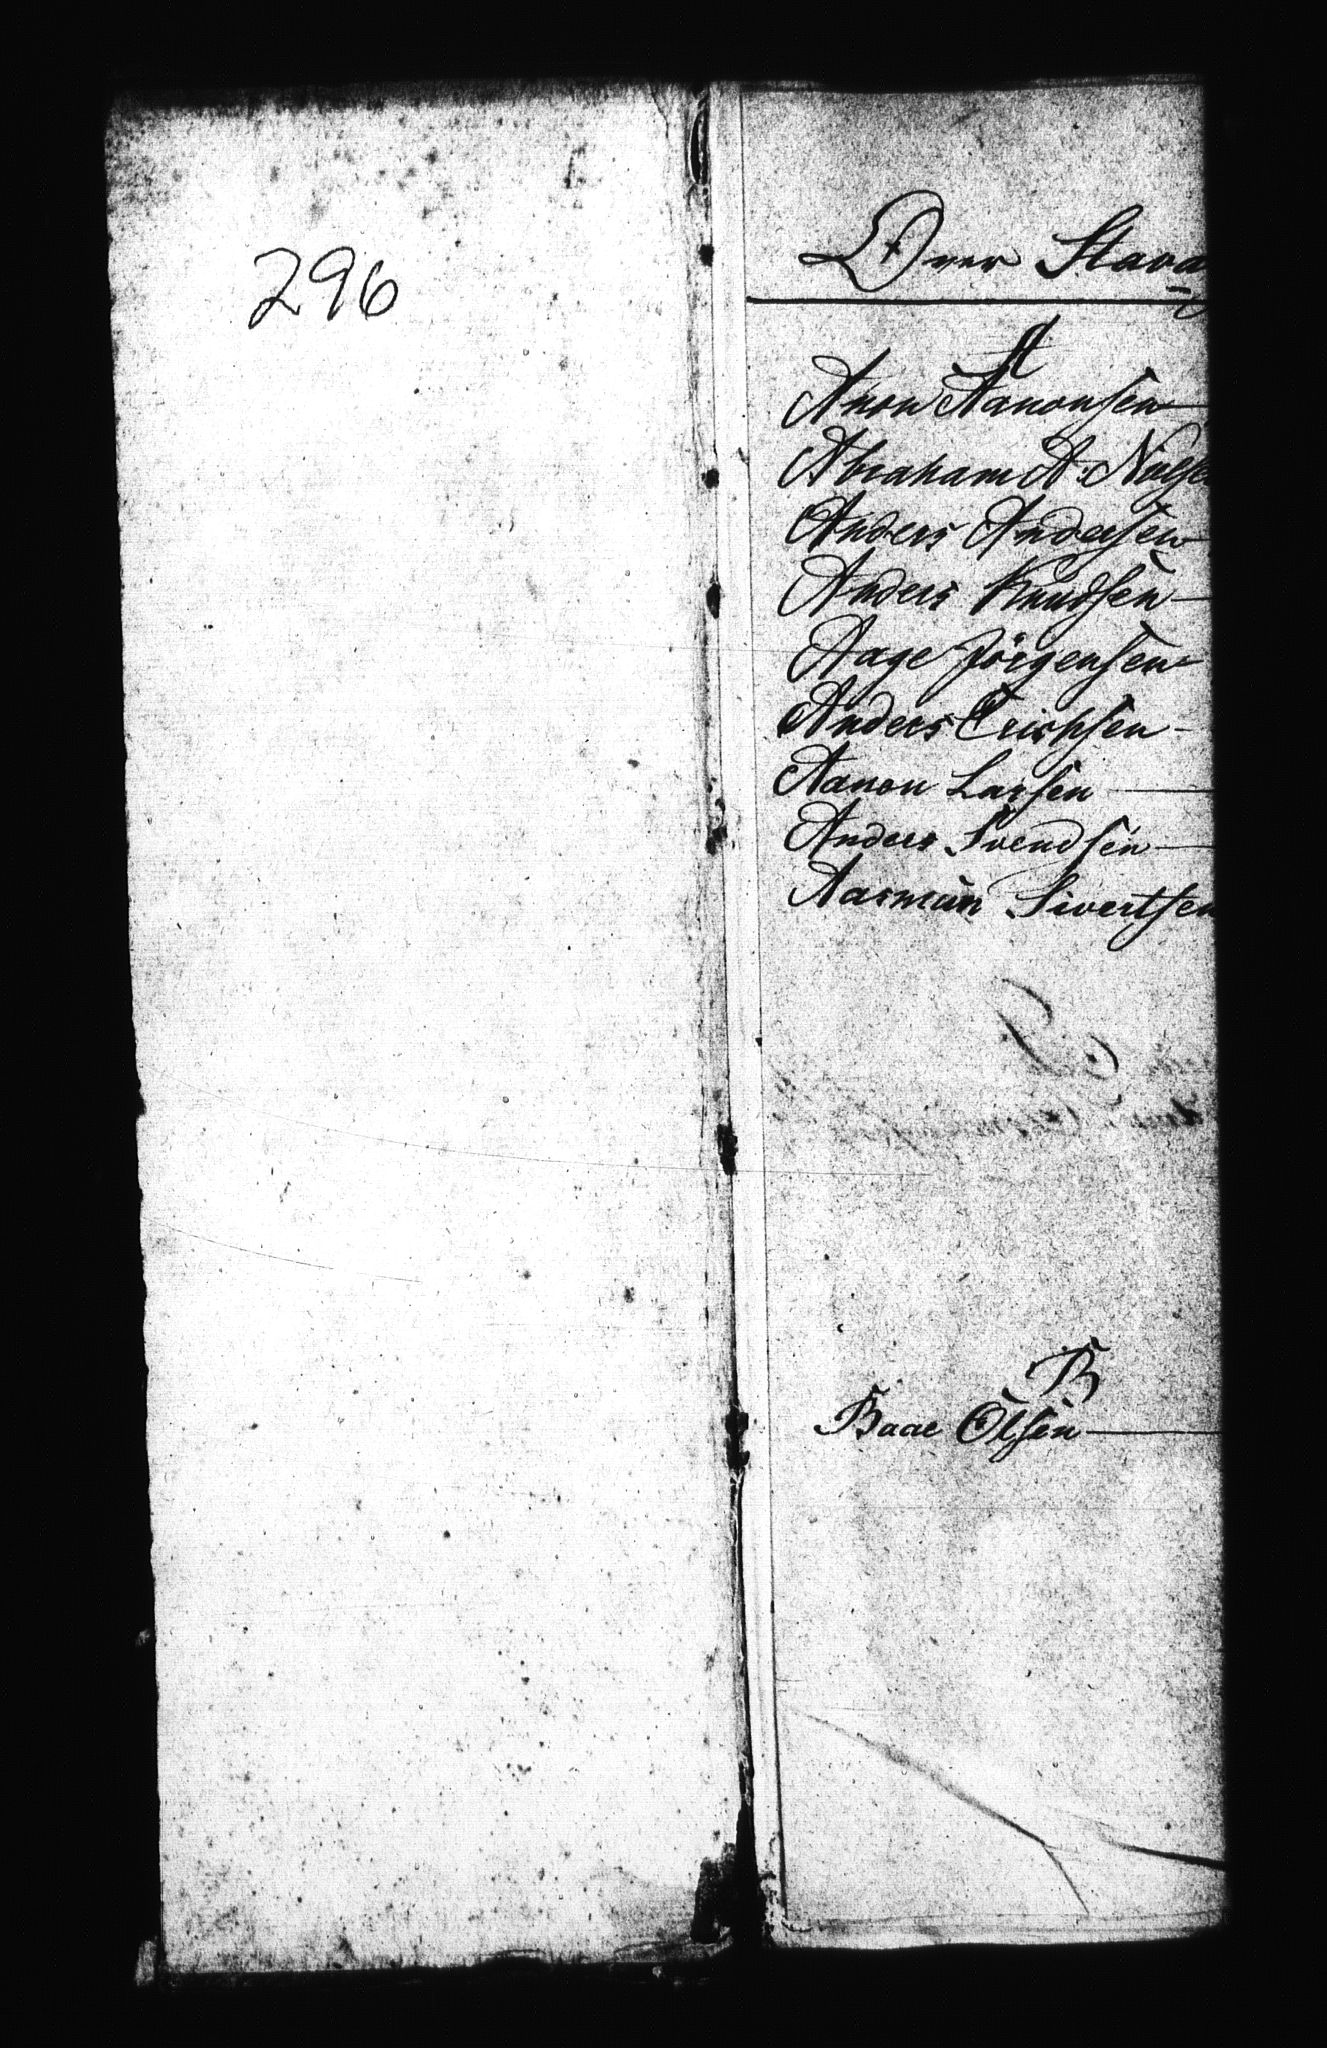 296
Over Stava
A
Anon Aanonsen
Abraham A. Niels
Anders Andersen
Anders Knudsen
Aage Jörgensen
Anders Erichsen
Aanon Larsen
Anders Svendsen
Aasmun Sivertsen
B
Baae Olsen